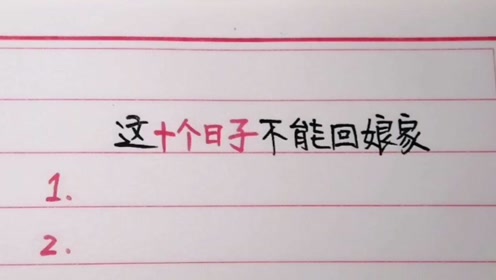 这十个日子不能回娘家
1.
2.